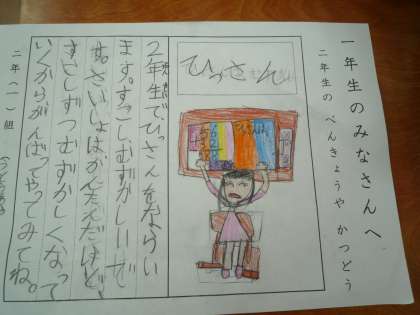 一年生のみなさんへ
二年生の べんきょうや かつどう
ひっさん
2年生でひっさんをならい
ます。すこしむずかしいで
す。さいしょはかんたんだけど、
すこしずつむずかしくなって
いくからがんばってやってみてね。
二年(一)組